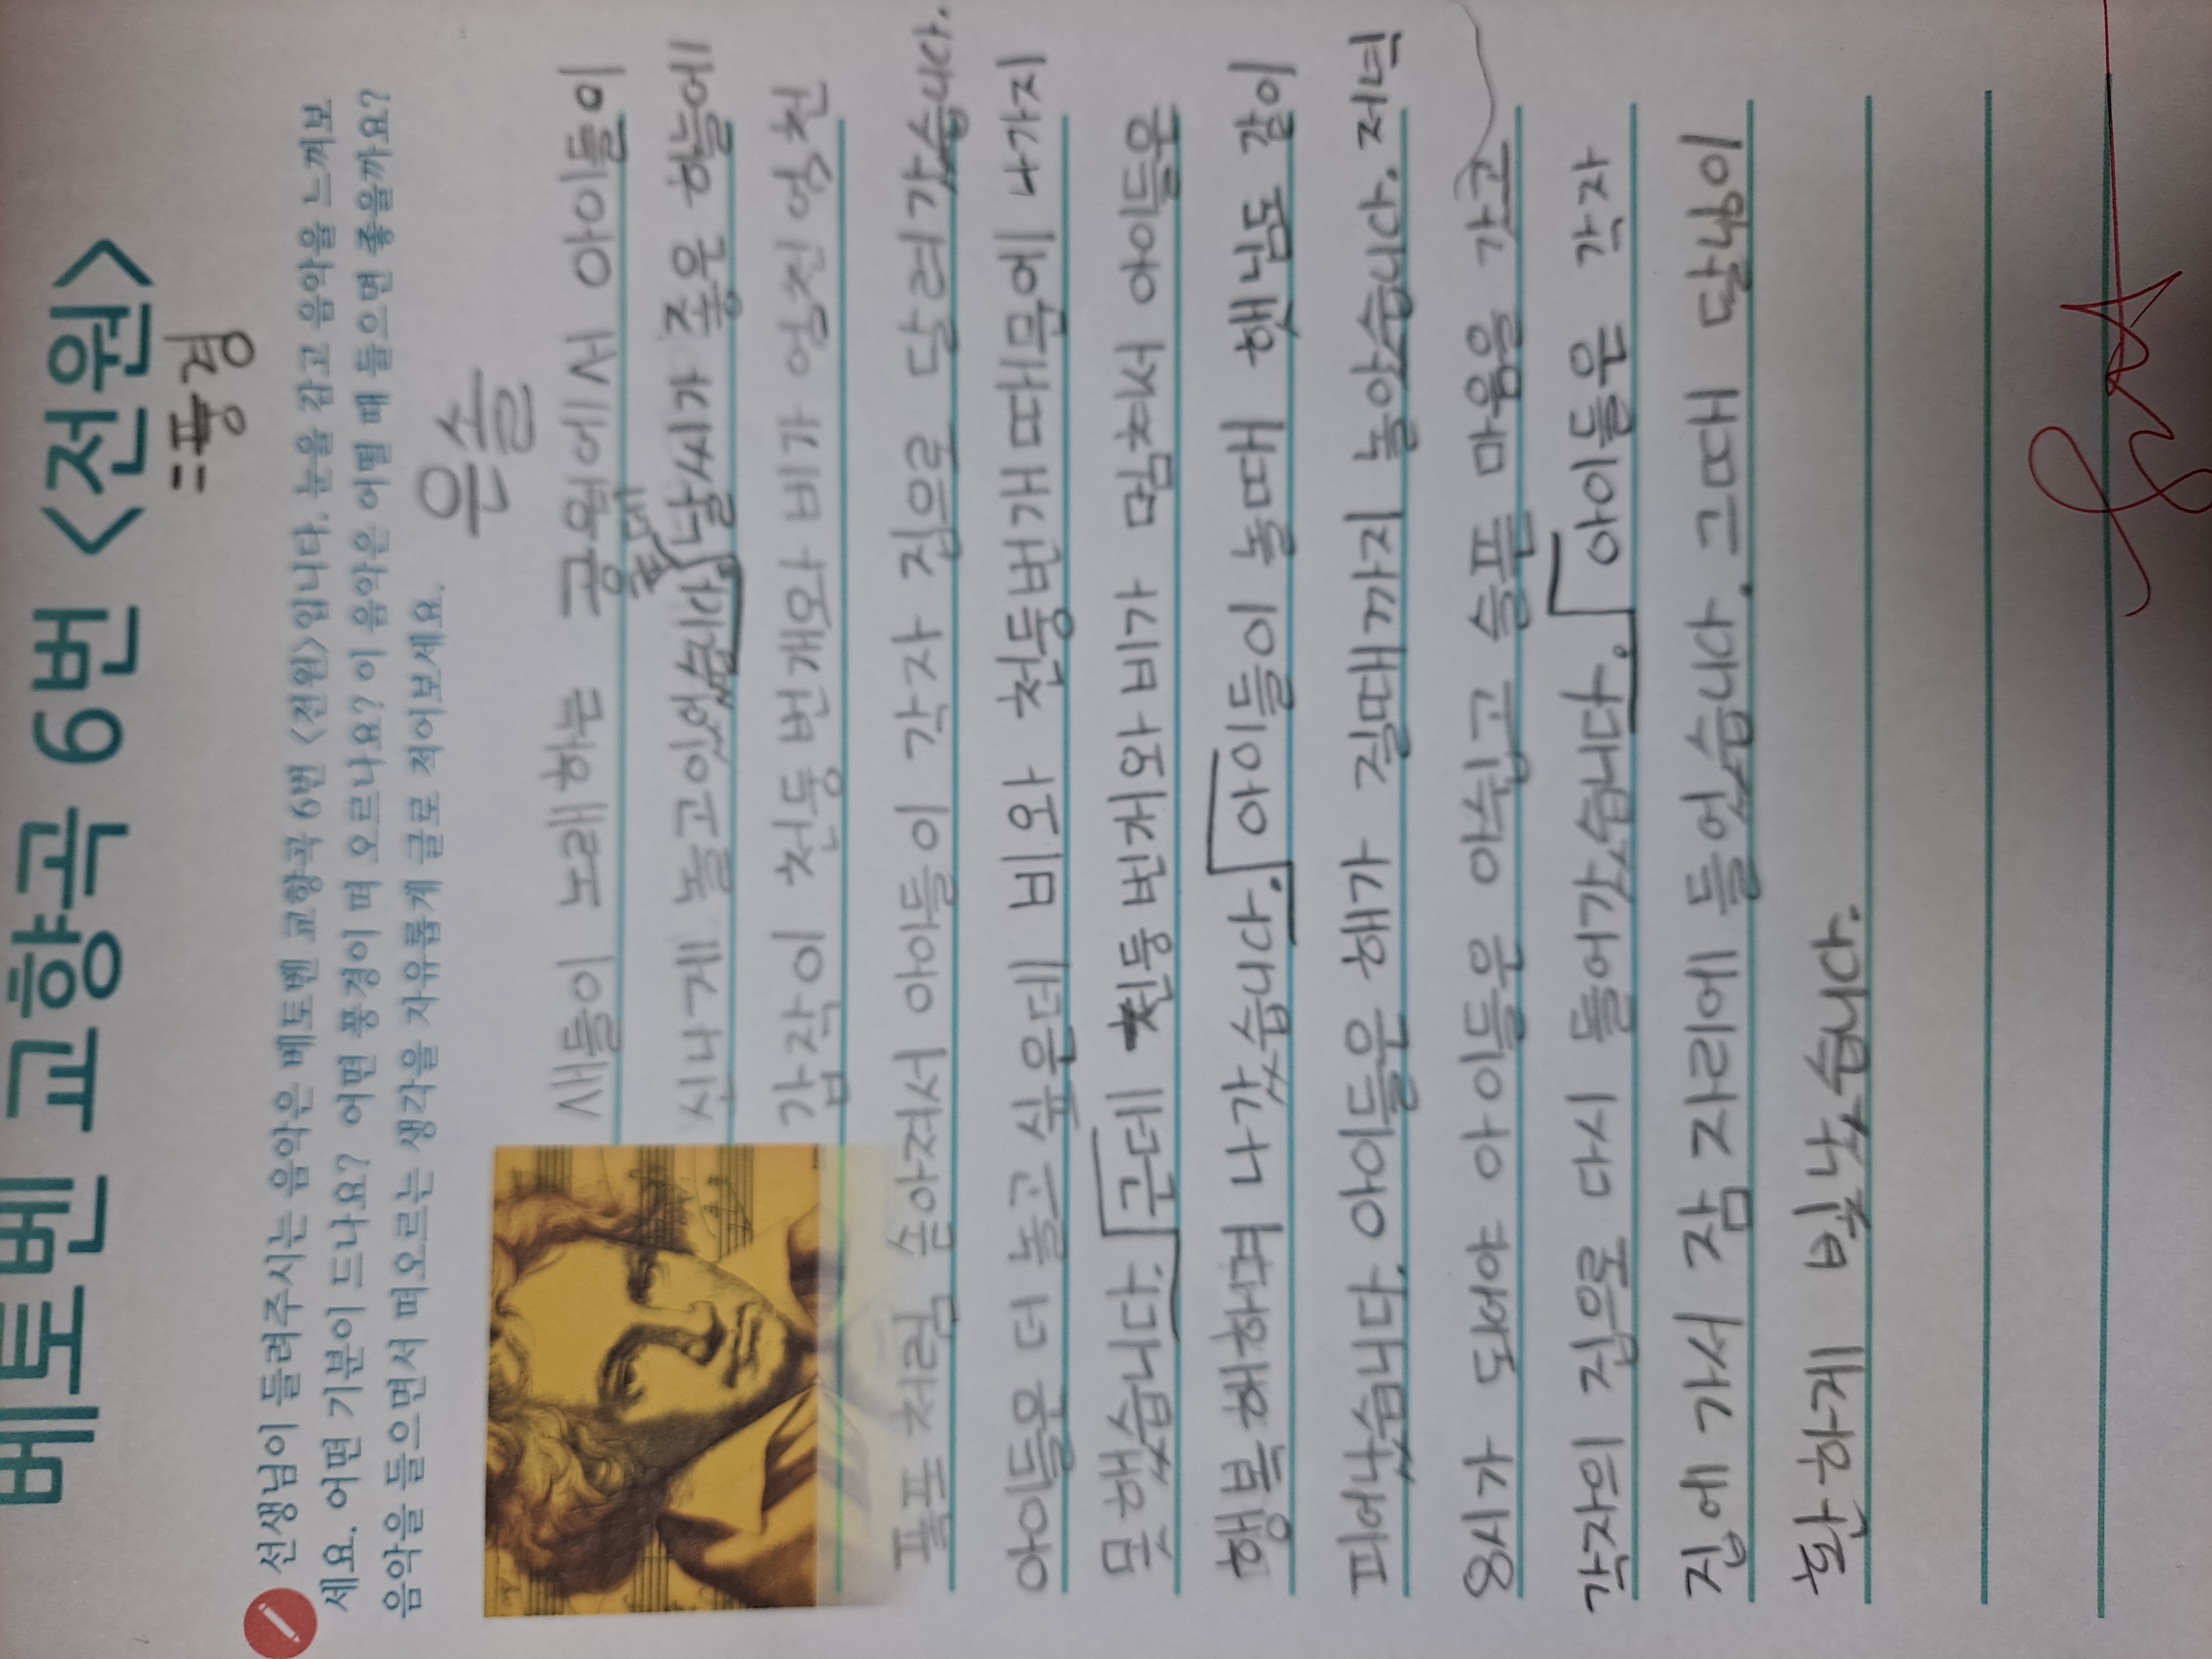 베토벤 교향곡 6번 <전원>
=풍경
선생님이 들려주시는 음악은 베토벤 교향곡 6번 <전원>입니다. 눈을 감고 음악을 느껴보
세요. 어떤 기분이 드나요? 어떤 풍경이 떠 오르나요? 이 음악은 어떨 때 들으면 좋을까요?
음악을 들으면서 떠오르는 생각을 자유롭게 글로 적어보세요.
은솔
새들이 노래하는 공원에서 아이들이
신나게 놀고있었습니다. 날씨가 좋은 하늘에
갑작이 천둥 번개와 비가 엄천 엄천
폭포 처럼 솓아져서 아아들이 각자 집으로 달려 갔습니다.
아이들은 더 놀고 싶은데 비와 천둥번개 때무에 나가지
못 했습니다. 군데 천둥 번개와 비가 멈춰서 아이들은
행복해하며 나갔습니다. 아이들이 놀때 햇님도 같이
피어났습니다. 아이들은 해가 질때까지 놀았습니다. 저녁
8시가 되어야 아이들은 아쉽고 슬픈 마음을 갖고
각자의 집으로 다시 돌어갔습니다. 아이들은 각자
집에 가서 잠 자리에 들었습니다. 그때 달님이
환하게 빛났습니다.